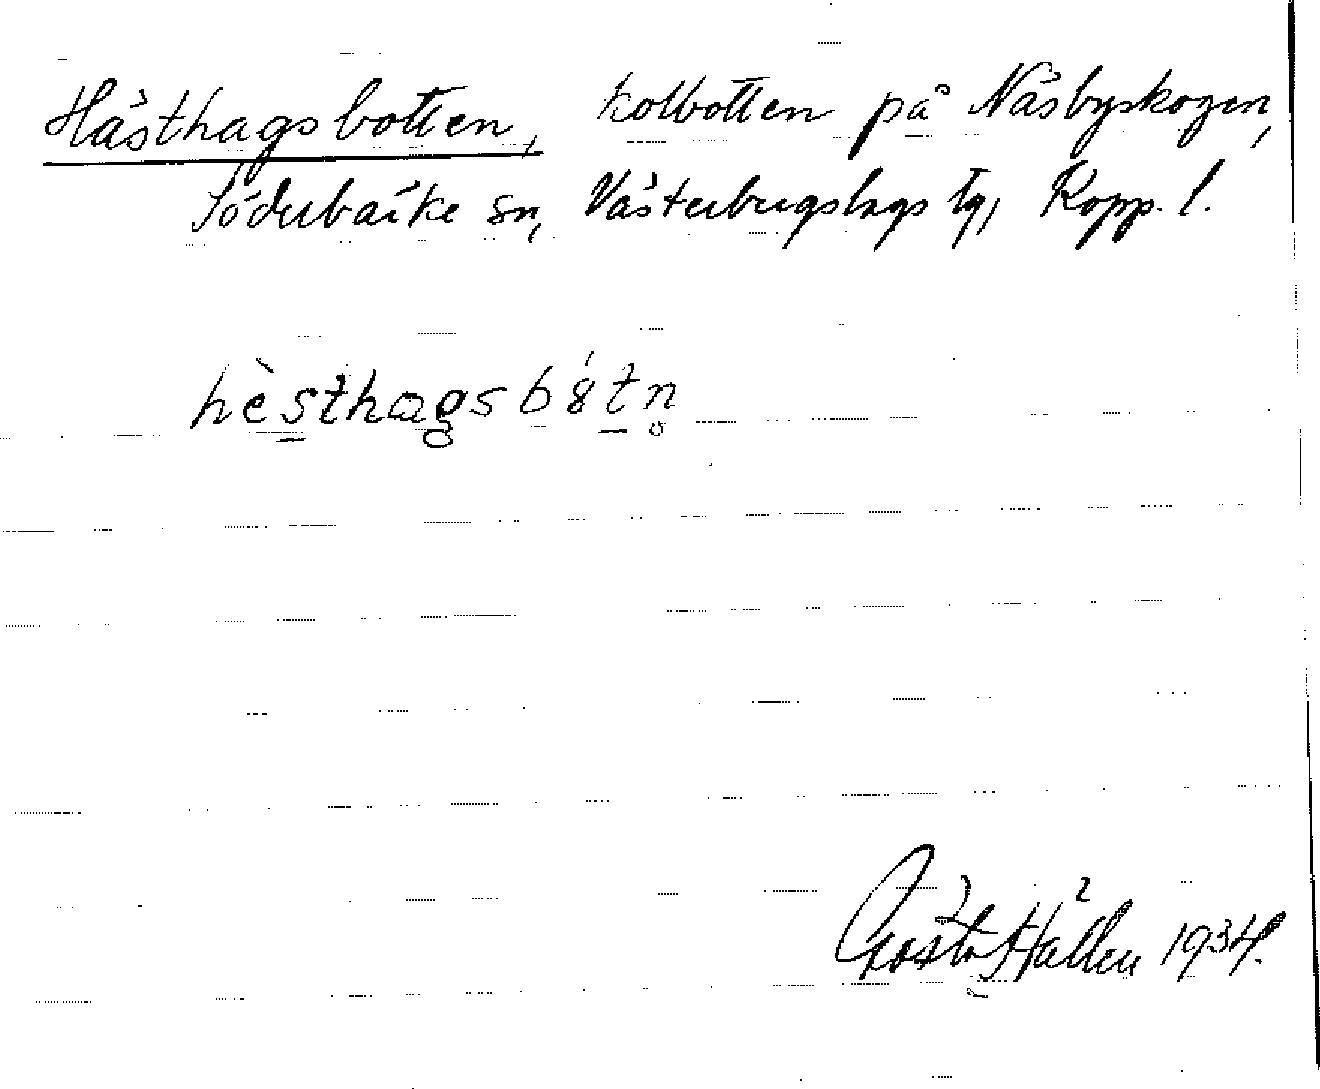 Hästhagsbotten, kolbotten på Näsbyskogen,
Söderbärke sn, Västerbergslags tg, Kopp. l.
hèsthagsbótn̥
Gösta Hallén 1934.